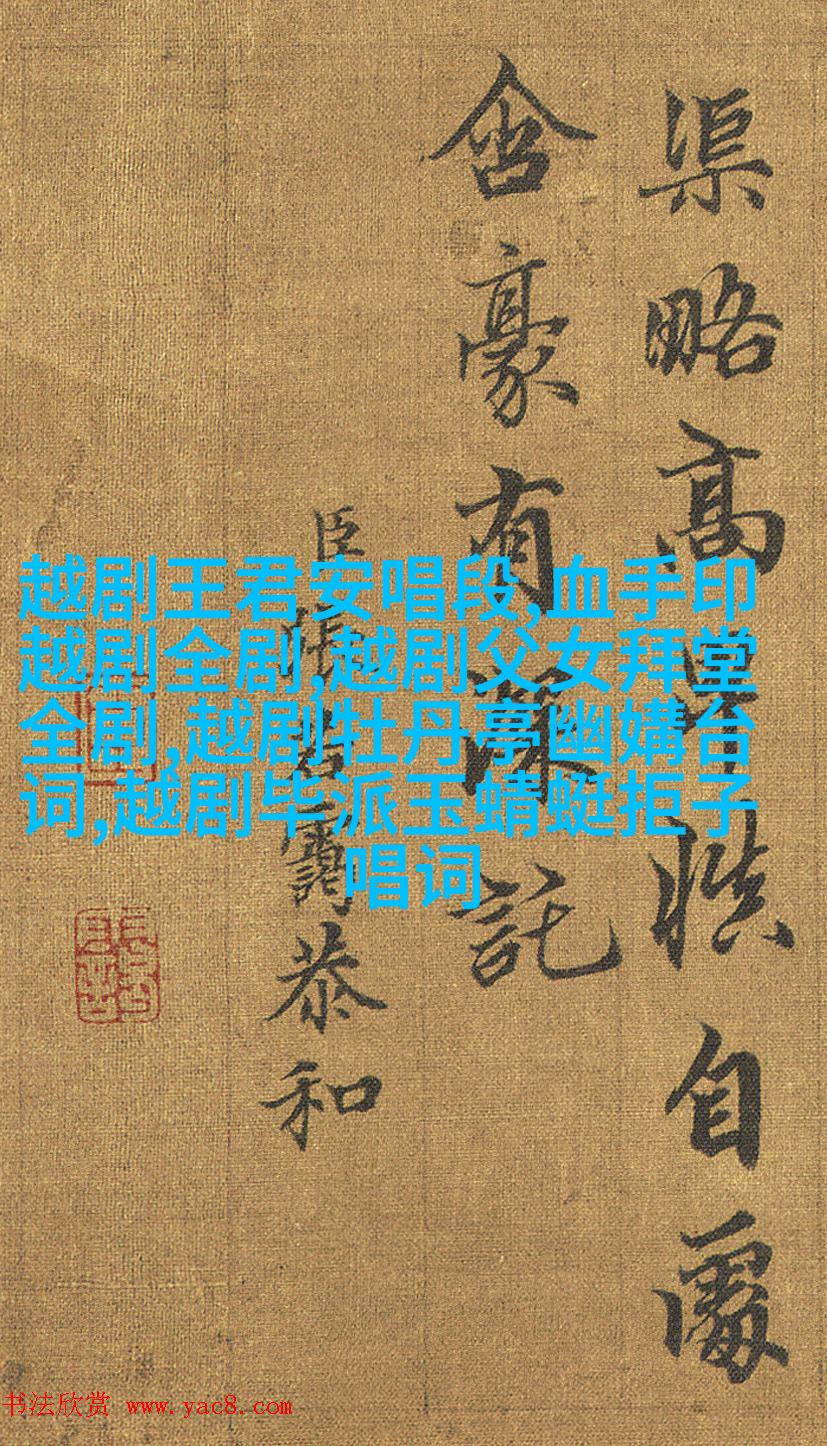 渠略高慎自處
含豪有深託
臣張若靄恭和
越剧王君安唱段,血手印
越剧全剧,越剧父女拜堂
全剧,越剧牡丹亭幽媾台
词,越剧毕派玉蜻蜓拒子
唱词
书法欣赏 www.yac8.com